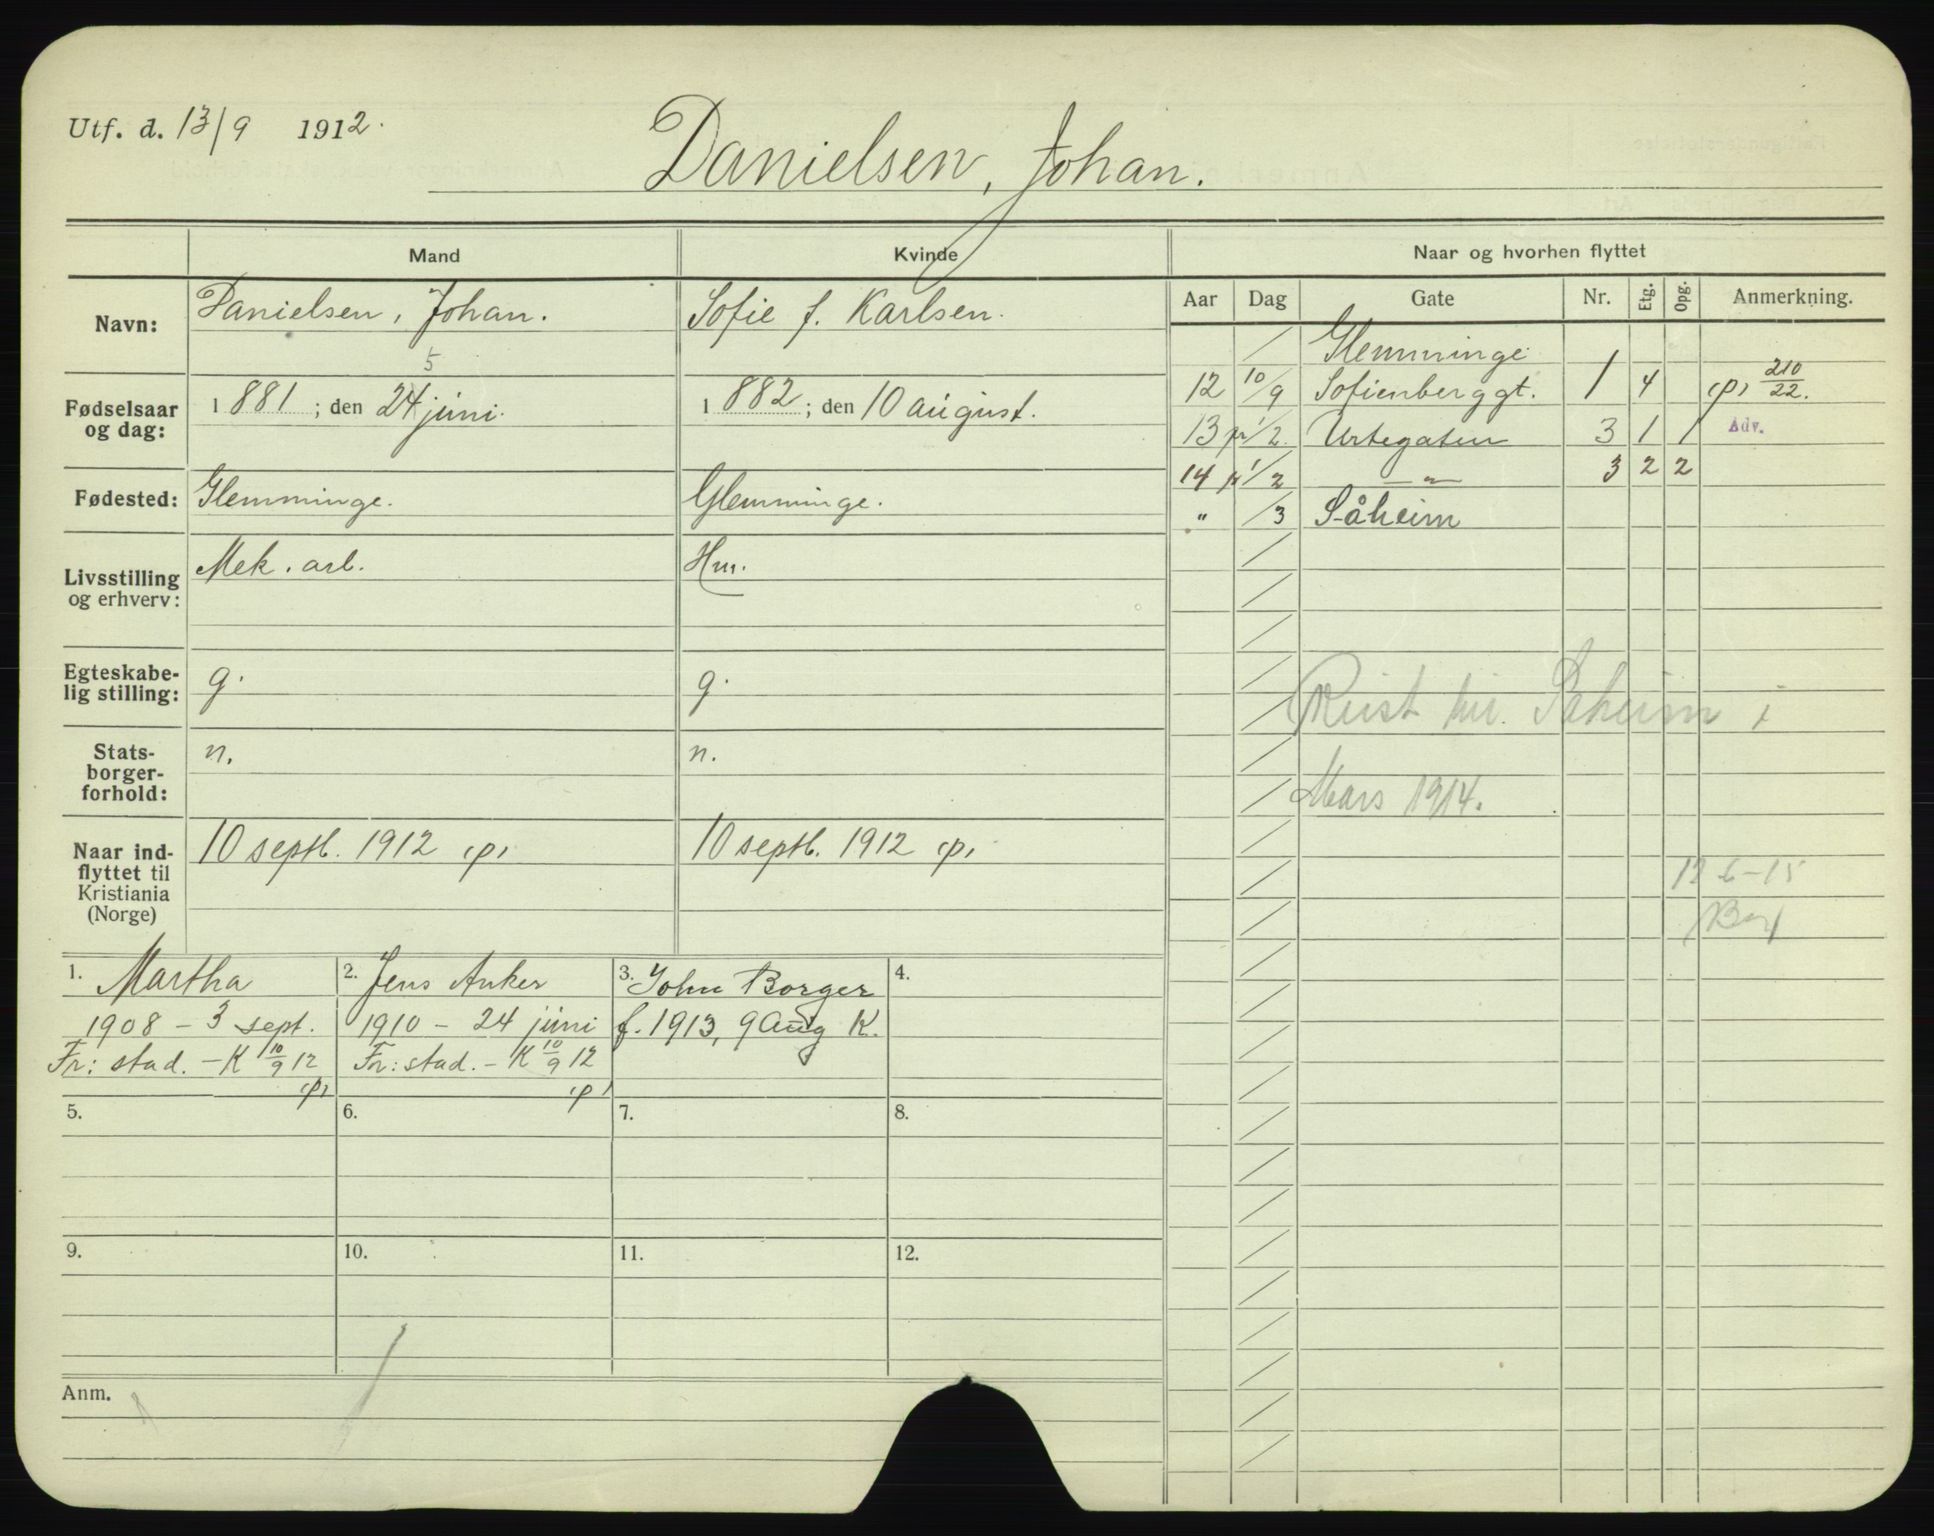 Utf. d. 13/9 1912.
Danielsen, Johan.
Mand
Kvinde
Naar og hvorhen flyttet
Navn:
Danielsen, Johan.
Sofie f. Karlsen.
Fødselsaar og dag:
1881; den 24 juni.
5
1882; den 10 august.
Fødested:
Glemminge.
Glemminge.
Livsstilling og erhverv:
Mek. arb.
Hm.
Egteskabe-
lig stilling:
g.
g.
Stats-
borger-
forhold:
n.
n.
Naar ind-
flyttet til
Kristiania
(Norge)
10 septb. 1912 (p)
10 septb. 1912 (p)
Aar Dag Gate Nr. Etg. Opg. Anmerkning.
/ Glemminge
12 10/9 Sofienberggt. 1 4 (p) 210/22.
13 pr 1/2. Urtegaten 3 1 1 Adv.
14 pr 1/2 — " — 3 2 2
" /3 Såheim
Reist til Saheim i
Mars 1914.
6-15
1. Martha
1908 - 3 sept.
Fr: stad. - K 10/9 12
(p)
2. Jens Anker
1910 - 24 juni
Fr: stad. - K 10/9 12
(p)
3. John Borger
f. 1913, 9 Aug K.
4.
5.
6.
7.
8.
9.
10.
11.
12.
Anm.